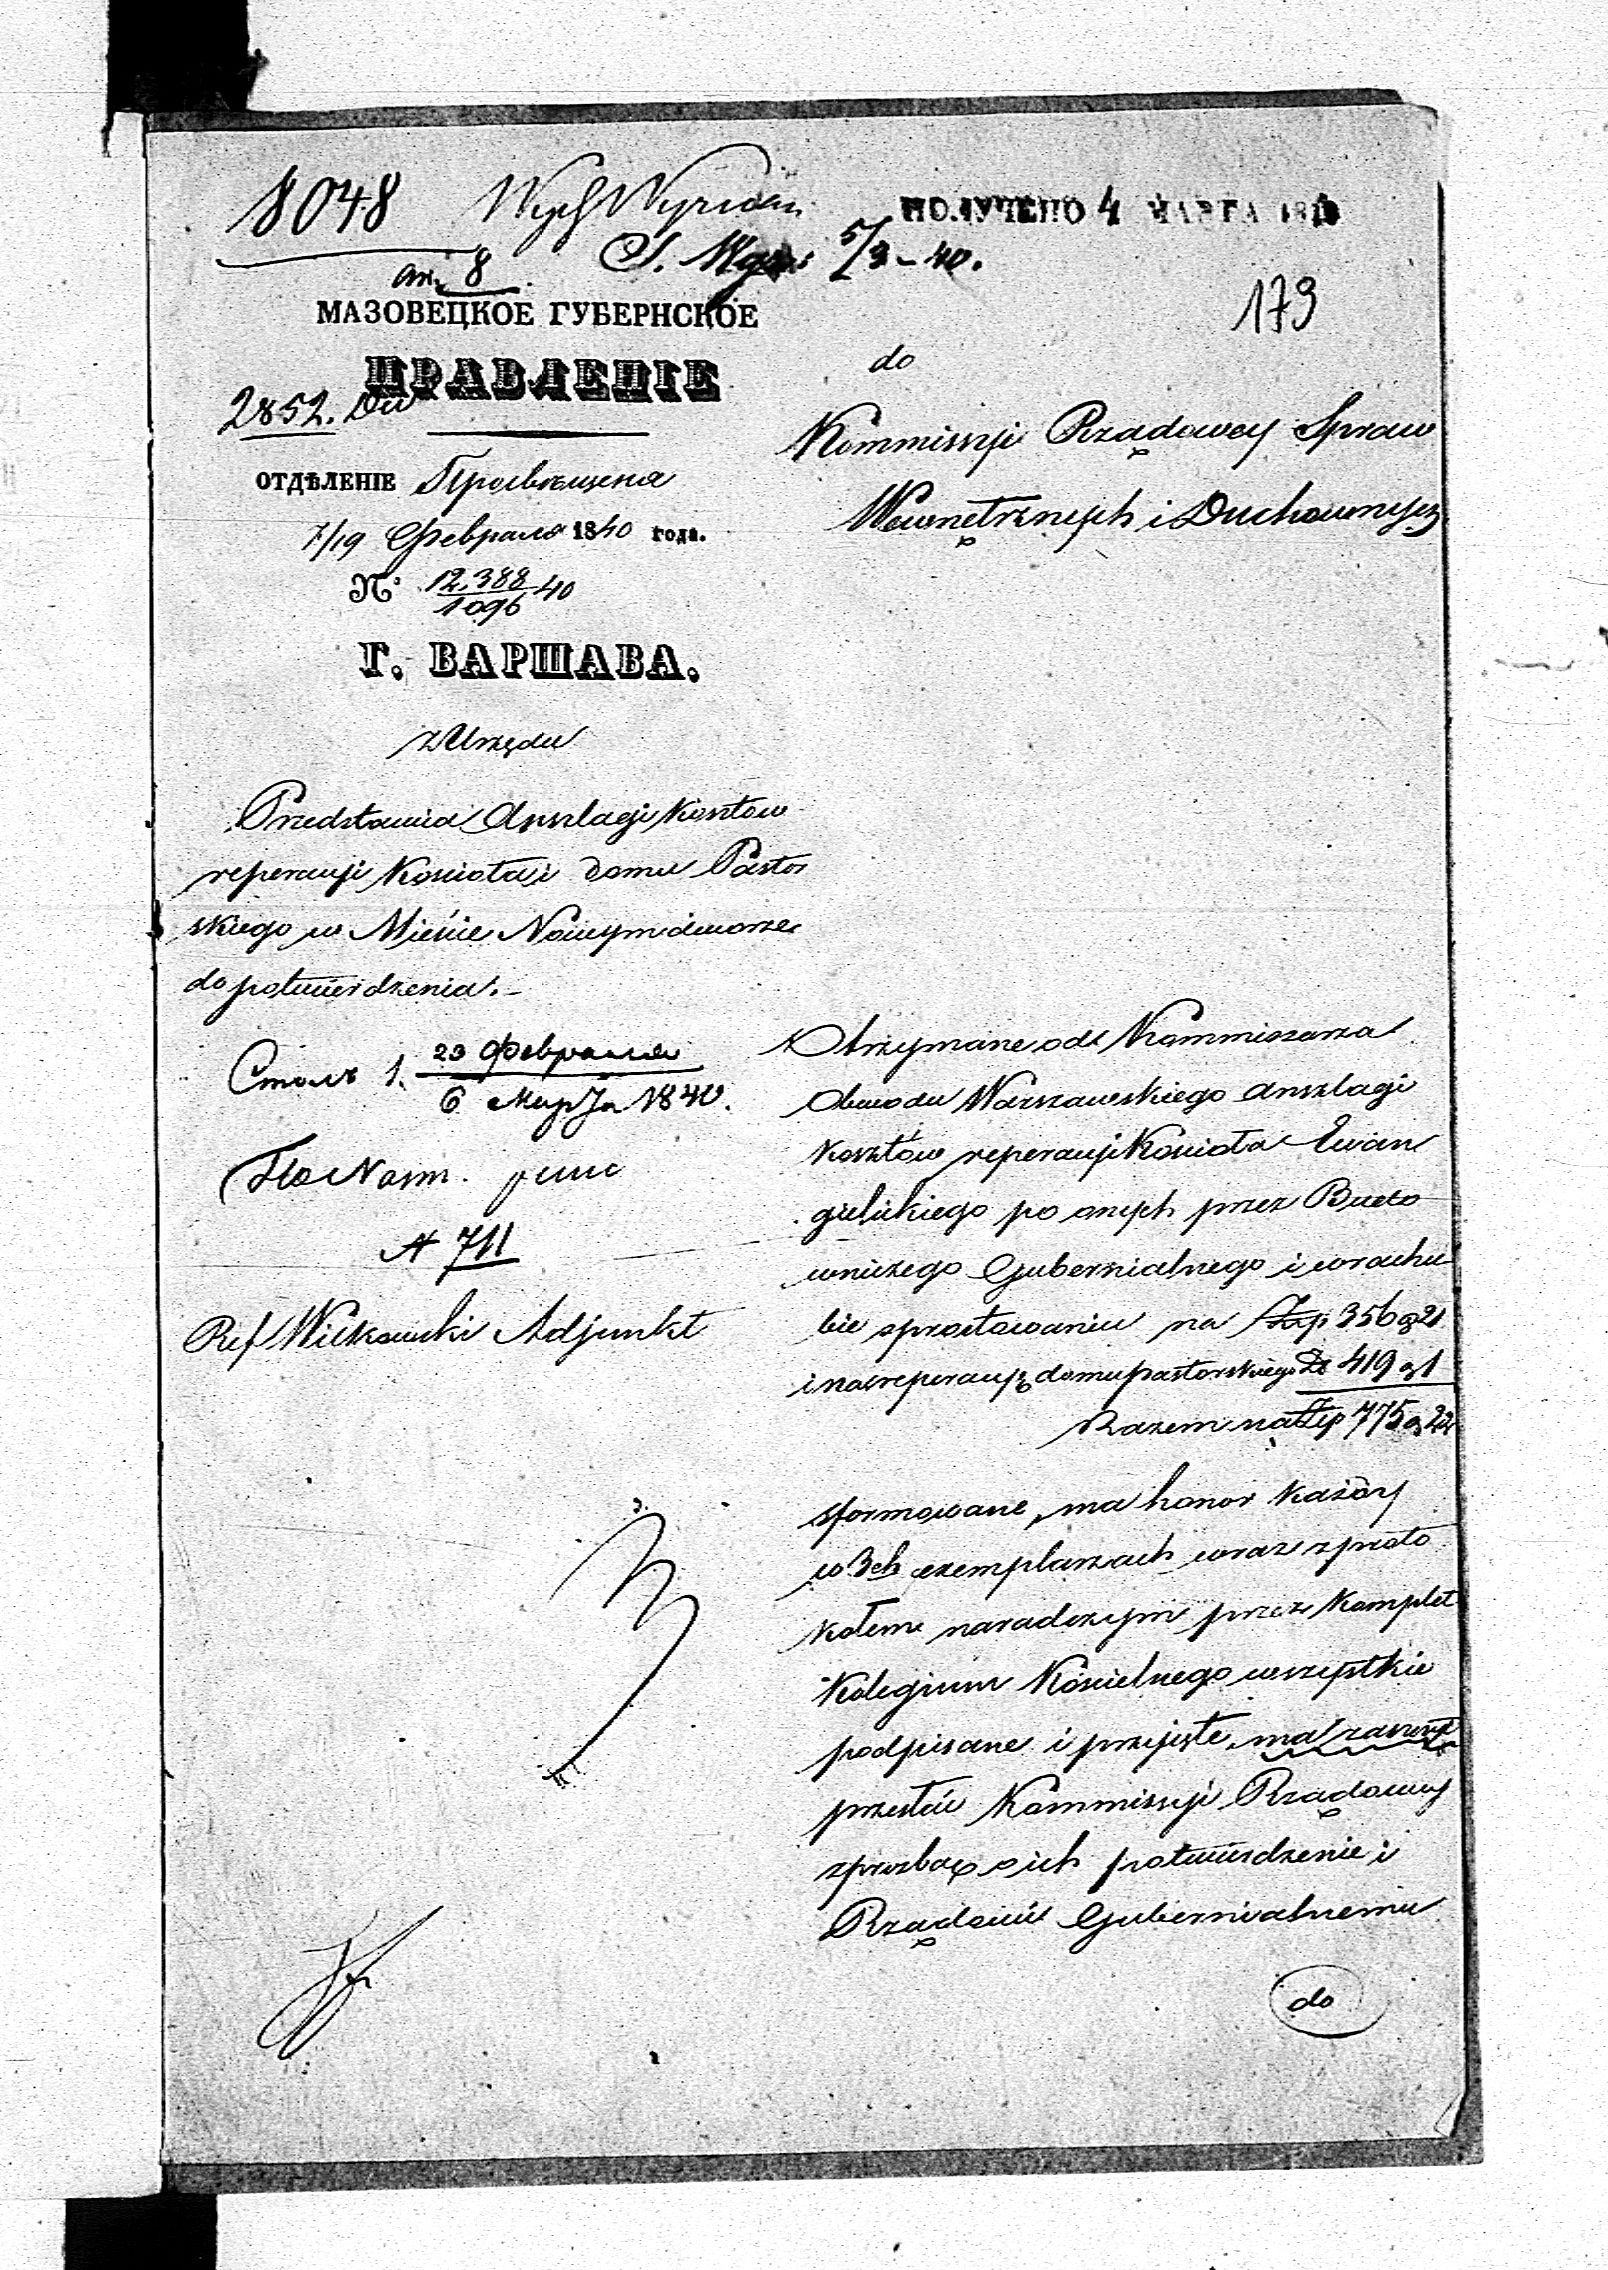 8048
ПОЛУЧЕНО 4 МАРТА 18
5/3 - 40.
8
179
МАЗОВЕЦКОЕ ГУБЕРНСКОЕ
ПРАВЛЕНІЕ
2852.
ОТДѢЛЕНІЕ Просвѣщенія
7/19 Февраля 1840 года.
№ 12,388/1096 40
Г. ВАРШАВА.
z Urzędu
Przedstawia Anszlagi kosztow
reperacyi Kościoła i domu Pastor
skiego w Mieście Nowymdworze
do potwierdzenia.-
Столъ 1. 23 Февраля
6 Марта 1840.
По Nom.
№ 711
Ref Witkowski Adjunkt
do
Kommissyi Rządowey Spraw
Wewnętrznych i Duchownych
Otrzymane od Kommissarza
Obwodu Warszawskiego anszlagi
kosztów reperacyi Kościoła Ewan
gielickiego po onych przez Budo
wniczego Gubernialnego i w rachu
bie sprostowaniu na Złp 356 g 21
i na reperacyę domu pastorskiego Zł 419 g 1
Razem na Złp 775 g 22
sformowane, ma honor każdy
w 3ch exemplarzach wraz z proto
kołem naradczym przez Komplet
Kolegium Kościelnego wszystkie
podpisane i przyjęte, ma zaszczyt
przesłać Kommissyi Rządowey
z prozbą o ich potwierdzenie i
Rządowi Gubernialnemu
do